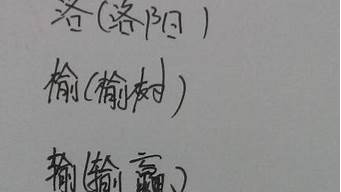 洛(洛阳)
榆(榆树)
输(输赢)